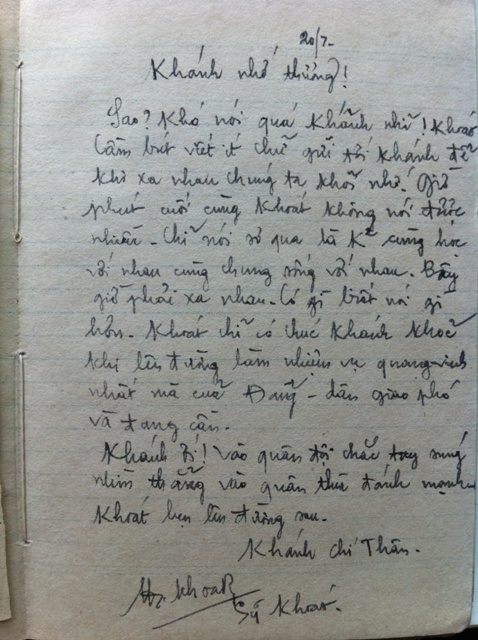 20/7-
Khánh nhớ thương!
Sao? Khó nói quá Khánh nhỉ! Khoát
Cầm bút viết ít chữ gửi tới Khánh để
khi xa nhau chúng ta khỏi nhớ. Giờ
phút cuối cùng Khoát không nói được
nhiều - Chỉ nói sơ qua là K² cùng học
với nhau cùng chung sống với nhau. Bây
giờ phải xa nhau. Có gì biết nói gì
hơn. Khoát chỉ có chúc Khánh khoẻ
khi lên đường làm nhiệm vụ quang vinh
nhất mà của Đảng - dân giao phó
và đang cần.
Khánh đi! Vào quân đội chắc tay súng
nhìn thẳng vào quân thù đánh mạnh
Khoát hẹn lên đường sau.
Khánh chí Thân.
Khoát
Sỹ Khoát.